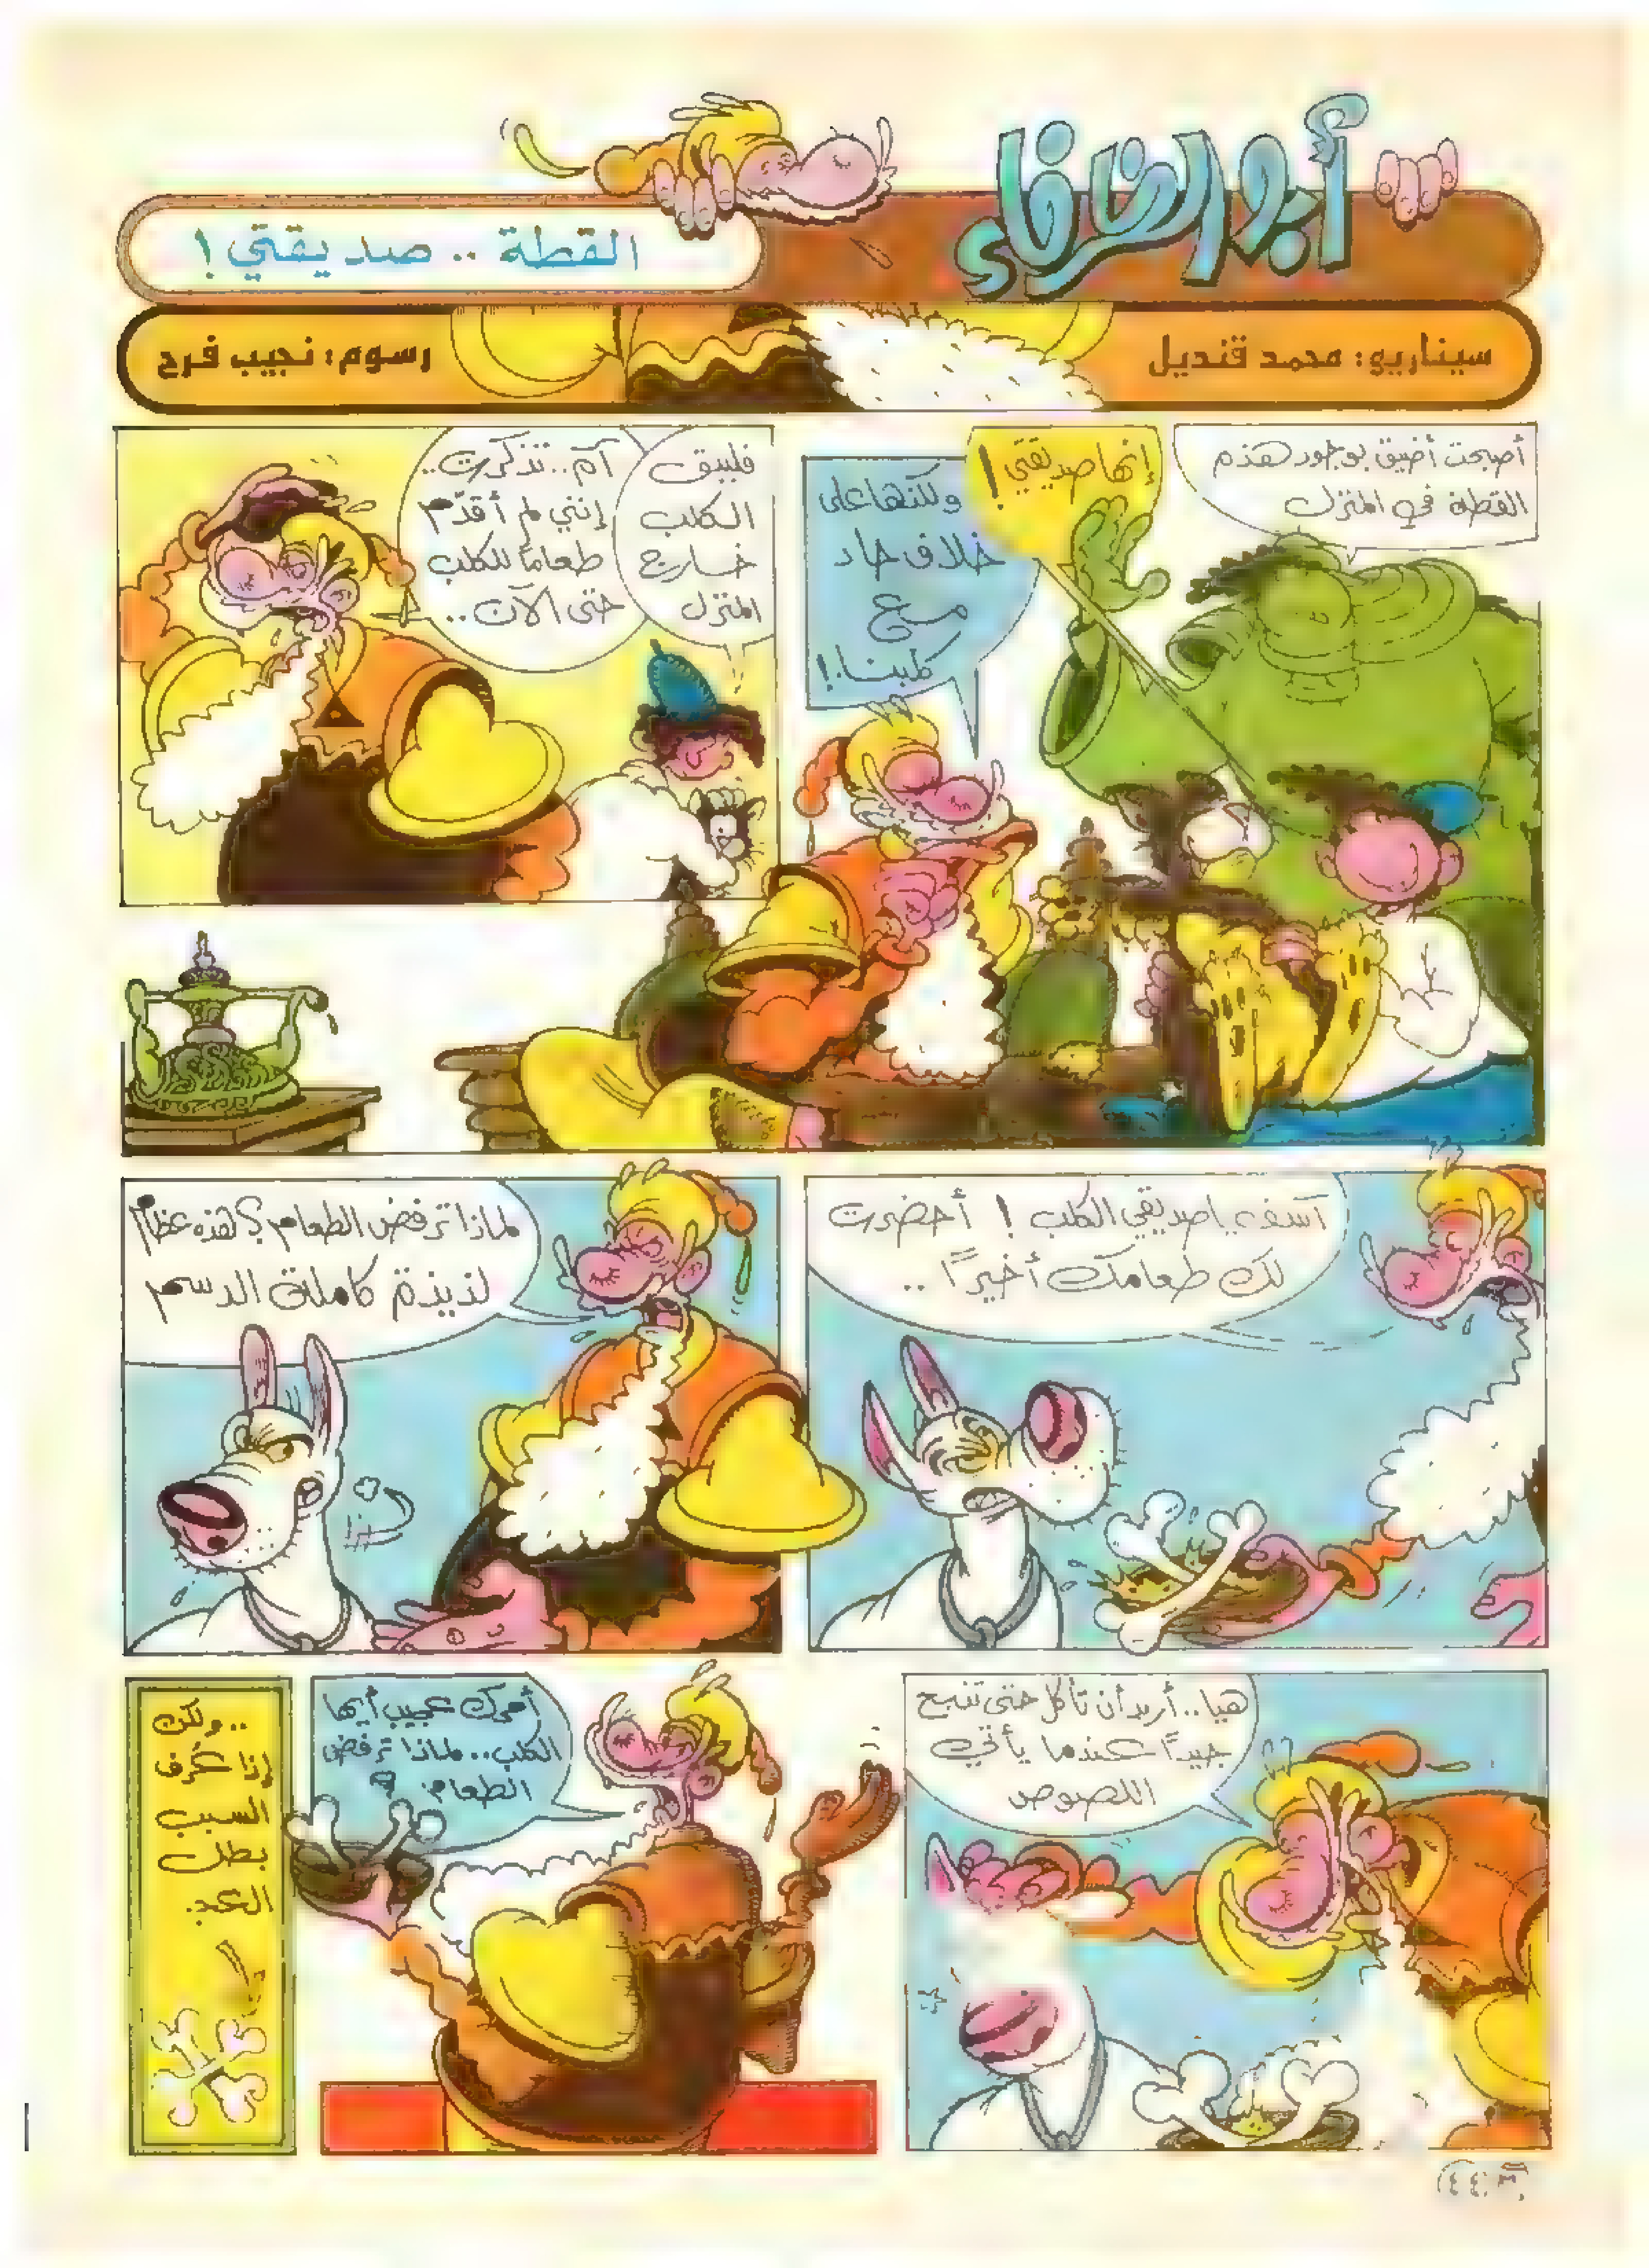 أبو الظرفاء
القطة .. صديقتي !
سيناريو: محمد قنديل
رسوم: نجيب فرح
أصبحت أضيق بوجود هذه
القطة في المنزل
إنها صديقتي !
ولكنها على
خلاف حاد
مع
كلبنا..!
فليبق
الكلب
خارج
المنزل
آه.. تذكرت..
إنني لم أقدّم
طعاماً للكلب
حتى الآن..
آسف يا صديقي الكلب ! أحضرت
لك طعامك أخيراً ..
لماذا ترفض الطعام؟ هذه عظام
لذيذة كاملة الدسم
هيا.. أريد أن تأكل حتى تنبح
جيداً عندما يأتي
اللصوص
أمرك عجيب أيها
الكلب.. لماذا ترفض
الطعام ؟
..ولكن
إذا عُرف
السبب
بطل
العجب.